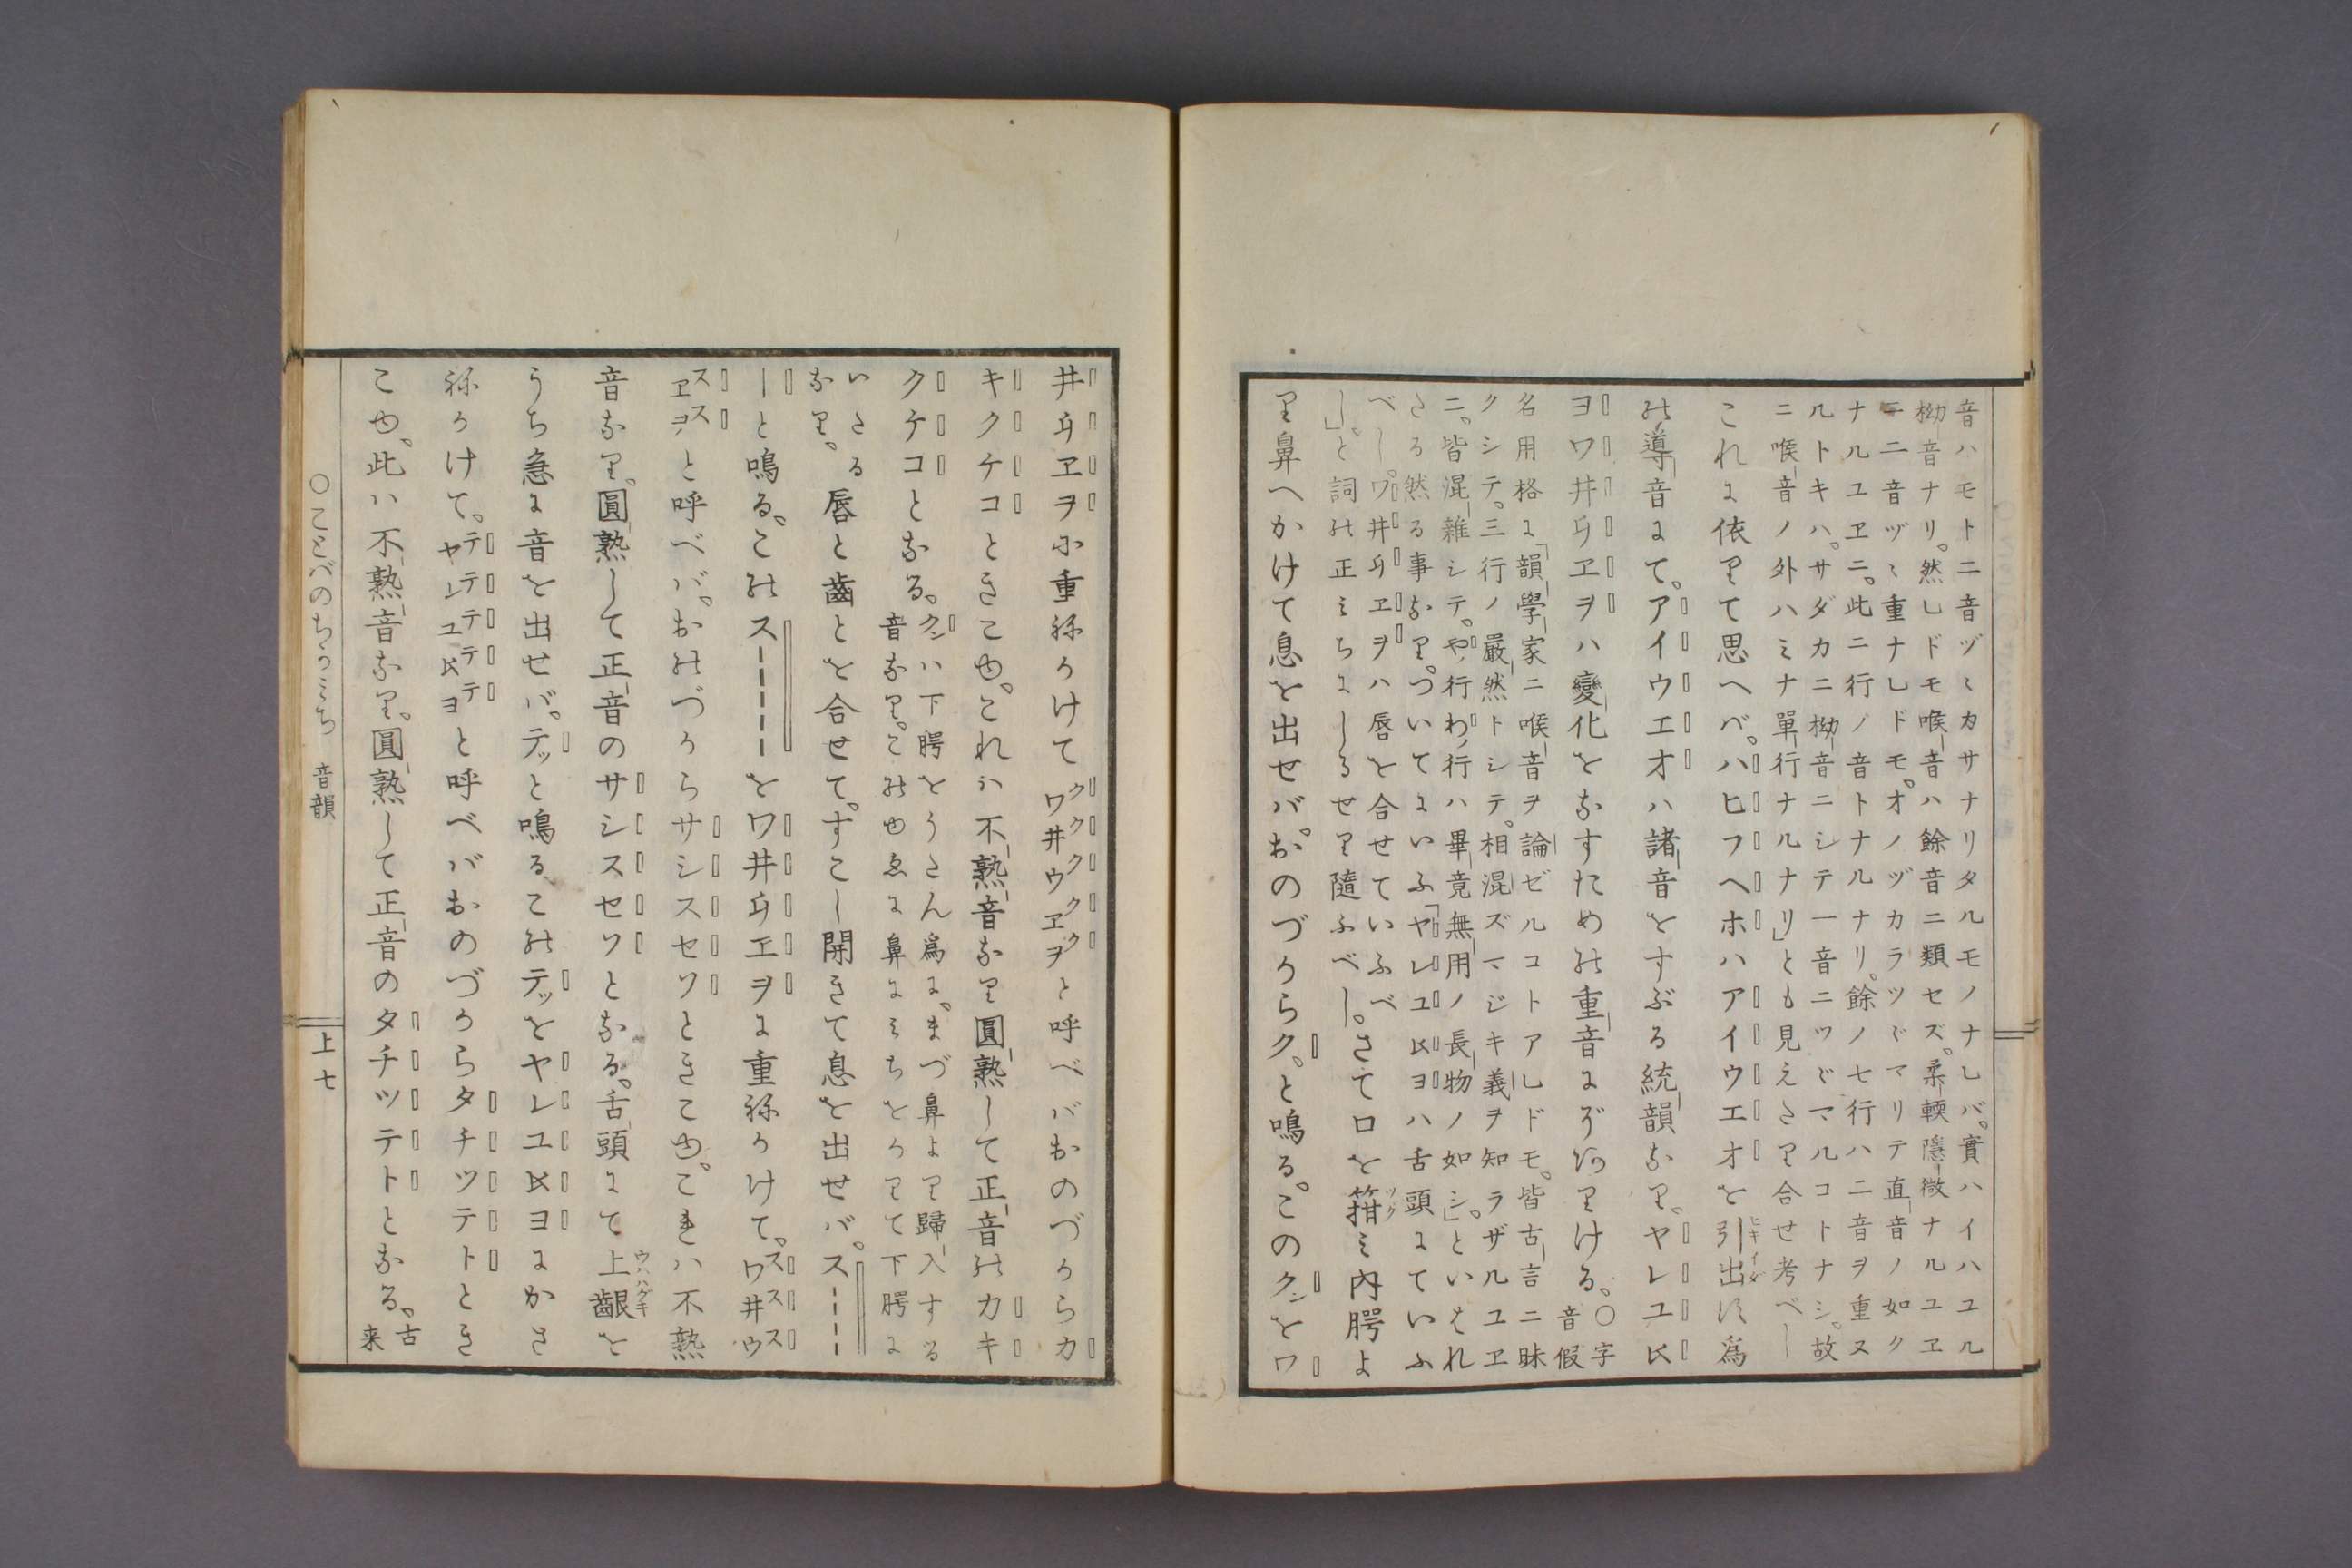 音ハモト二音ヅヽカサナリタルモノナレバ。實ハイハユル
拗音ナリ。然レドモ喉音ハ餘音ニ類セズ。柔輭隱微ナルユヱ
ニ二音ヅヽ重ナレドモ。オノヅカラツヾマリテ直音ノ如ク
ナルユヱニ。此二行ノ音トナルナリ。餘ノ七行ハ二音ヲ重ヌ
ルトキハ。サダカニ拗音ニシテ一音ニツヾマルコトナシ。故
ニ喉音ノ外ハミナ單行ナルナリ」とも見えたり合せ考べし
これに依りて思へバ。ハヒフヘホハアイウエオを引出ヒキイダス爲
の導音にて。アイウエオハ諸音をすぶる統韻なり。ヤレユ
ヨワ井ヱヲハ變化をなすための重音にぞありける。○字音假
名用格に「韻學家ニ喉音ヲ論ゼルコトアレドモ。皆古言ニ昧
クシテ。三行ノ嚴然トシテ。相混ズマジキ義ヲ知ラザルユヱ
ニ。皆混雜シテ。や行わ行ハ畢竟無用ノ長物ノ如シ。」といはれ
たる然る事なり。ついてにいふ「ヤレユヨハ舌頭にていふ
べし。ワ井ヱヲハ唇を合せていふべ
し」。と詞の正みちにしるせり隨ふべし。さて口を箝ツクみ内腭よ
り鼻へかけて息を出せバ。おのづからク。と鳴る。このクンをワ
井ヱヲに重ねかけてクワク井クウクヱクヲと呼べバおのづからカ
キクケコときこゆ。これハ不熟音なり圓熟して正音のカキ
クケコとなる。クンハ下腭をうたん爲に。まづ鼻より歸入する
音なり。このゆゑに鼻にみちをかりて下腭に
いたる
なり。唇と齒とを合せて。すこし開きて息を出せバ。スーーー
ーと鳴る。このスーーーーをワ井ヱヲに重ねかけて。スワス井スウ
スヱスヲと呼べバ。おのづからサシスセソときこゆ。こきハ不熟
音なり。圓熟して正音のサシスセソとなる。舌頭にて上齦ウハハグキを
うち急に音を出せバ。テッと鳴るこのテッをヤレユヨにかさ
ねかけて。テヤテレテユテテヨと呼べバおのづからタチツテトとき
こゆ。此ハ不熟音なり。圓熟して正音のタチツテトとなる。古来
○ことばのちかみち 音韻 上七